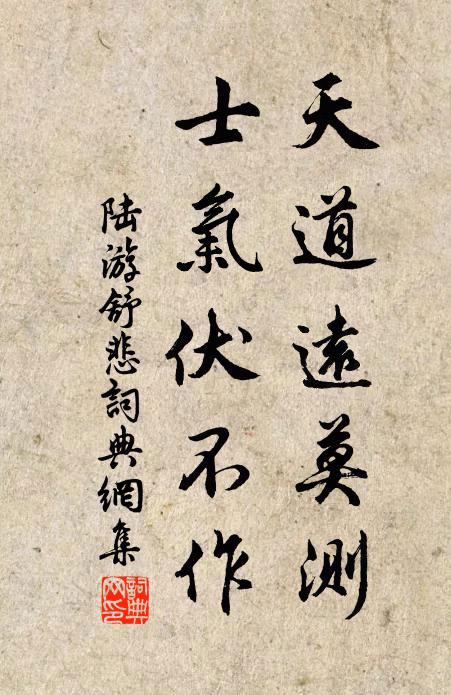 天道遠莫測
士氣伏不作
陆游舒悲詞典網集
詞典网印